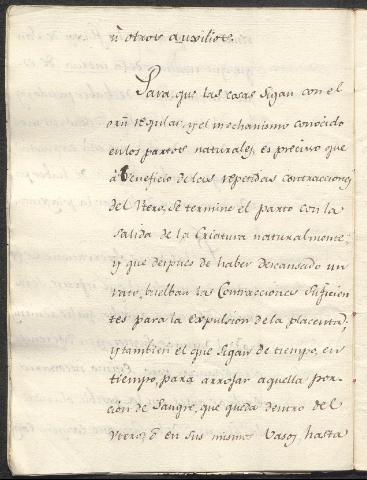 ù otros auxilios.
Para, que las cosas sigan con el
orn regular, y el mechanismo conocido
en los partos naturales, es preciso que
á beneficio de las repetidas contracciones
del Utero, se termine el parto con la
salida de la Criatura naturalmente,
y que despues de haber descansado un
rato, buelban las Contracciones suficien
tes para la expulsion de la placenta;
y tambien el que sigan de tiempo, en
tiempo, para arrojar aquella por-
ción de Sangre, que queda dentro del
Utero, ó en sus mismos Vasos, hasta